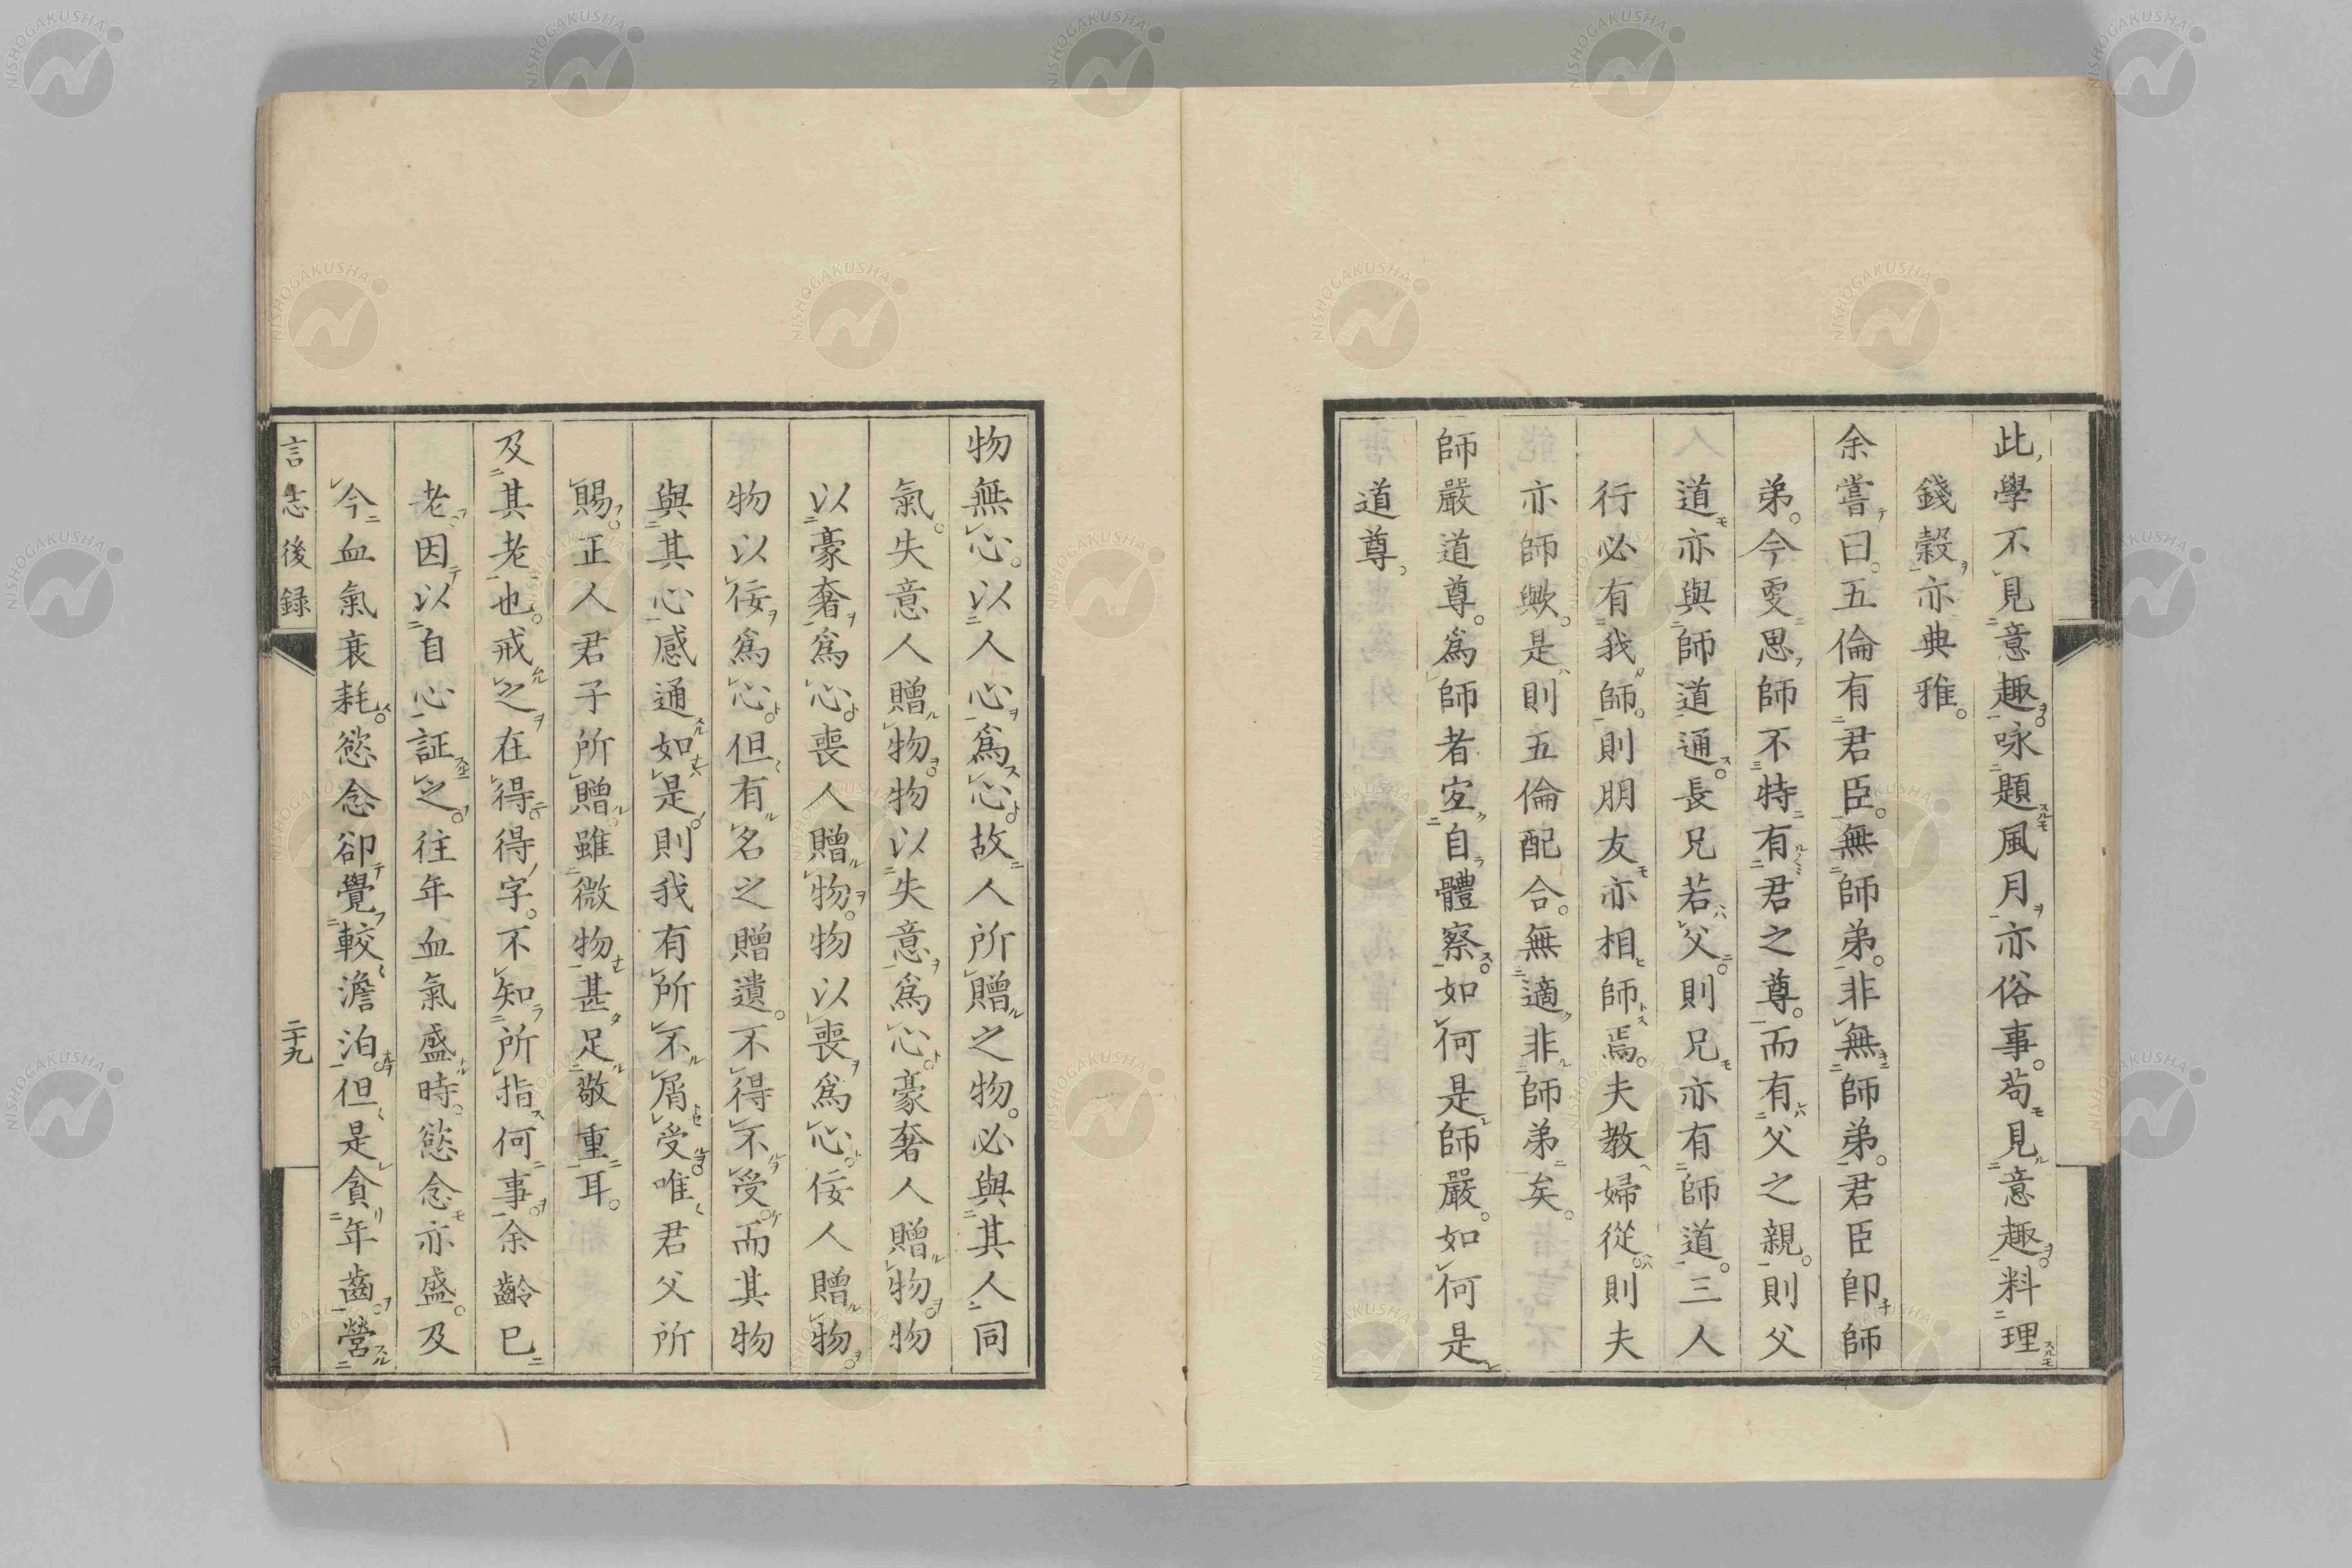 此學不見意趣咏題風月亦俗事。苟見意趣。料理
錢穀亦典雅。
余嘗曰。五倫有君臣。無師弟。非無師弟。君臣卽師
弟。今更思師不特有君之尊。而有父之親。則父
道亦與師道通。長兄若父。則兄亦有師道。三人
行必有我師。則朋友亦相師焉。夫教婦從。則夫
亦師歟。是則五倫配合。無適非師弟矣。
師嚴道尊。爲師者宜自體察。如何是師嚴。如何是
道尊。
物無心。以人心爲心。故人所贈之物。必與其人同
氣。失意人贈物。物以失意爲心。豪奢人贈物。物
以豪奢爲心。喪人贈物。物以喪爲心。佞人贈物。
物以佞爲心。但有名之贈遺。不得不受。而其物
與其心感通如是。則我有所不屑受。唯君父所
賜。正人君子所贈。雖微物甚足敬重耳。
及其老也。戒之在得。得字。不知所指何事。余齡已
老。因以自心証之。往年血氣盛時。慾念亦盛。及
今血氣衰耗。慾念卻覺較澹泊。但是貪年齒營
言志後録
二十九
NISHOGAKUSHA